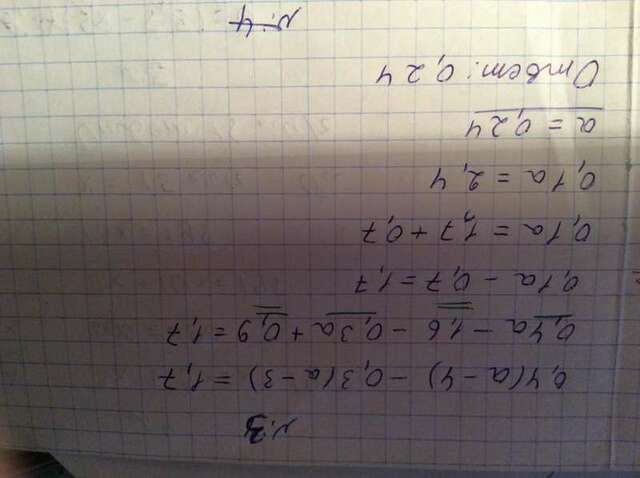 №3
0,4(a-4) - 0,3(a-3) = 1,7
0,4a - 1,6 - 0,3a + 0,9 = 1,7
0,1a - 0,7 = 1,7
0,1a = 1,7 + 0,7
0,1a = 2,4
a = 0,24
Ответ: 0,24
№4